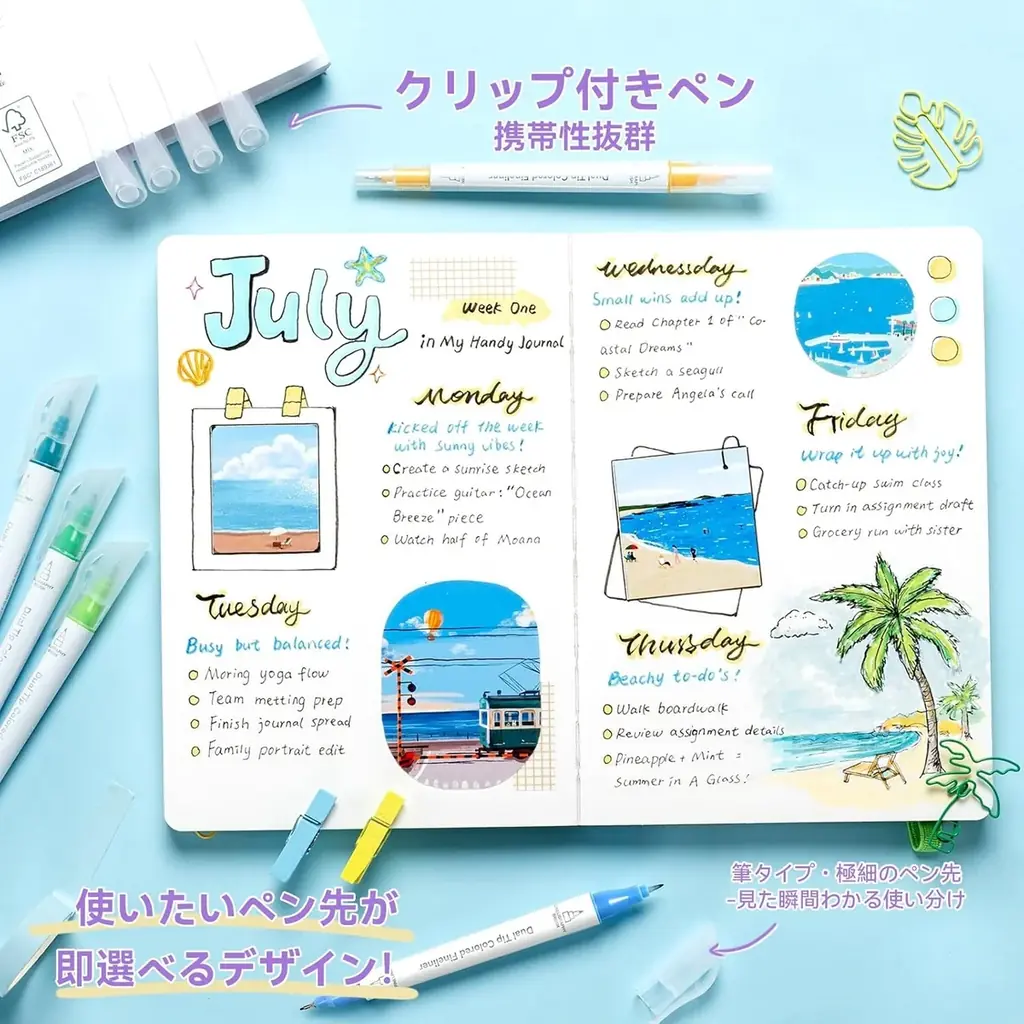 クリップ付きペン
携帯性抜群
FSC
MIX
Dual Tip Colored Fineliner
July
Week One
in My Handy Journal
Monday
Kicked off the week
with sunny vibes!
Create a sunrise sketch
Practice guitar: "Ocean
Breeze" piece
Watch half of Moana
Tuesday
Busy but balanced!
Moring yoga flow
Team metting prep
Finish journal spread
Family portrait edit
Wednessday
Small wins add up!
Read Chapter 1 of "Co-
astal Dreams"
Sketch a seagull
Prepare Angela's call
Thursday
Beachy to-do's!
Walk boardwalk
Review assignment details
Pineapple + Mint =
Summer in A Glass!
Friday
Wrap it up with joy!
Catch-up swim class
Turn in assignment draft
Grocery run with sister
Dual Tip Colored
Dual Tip Colored
使いたいペン先が
即選べるデザイン!
Dual Tip Colored Fineliner
筆タイプ・極細のペン先
-見た瞬間わかる使い分け